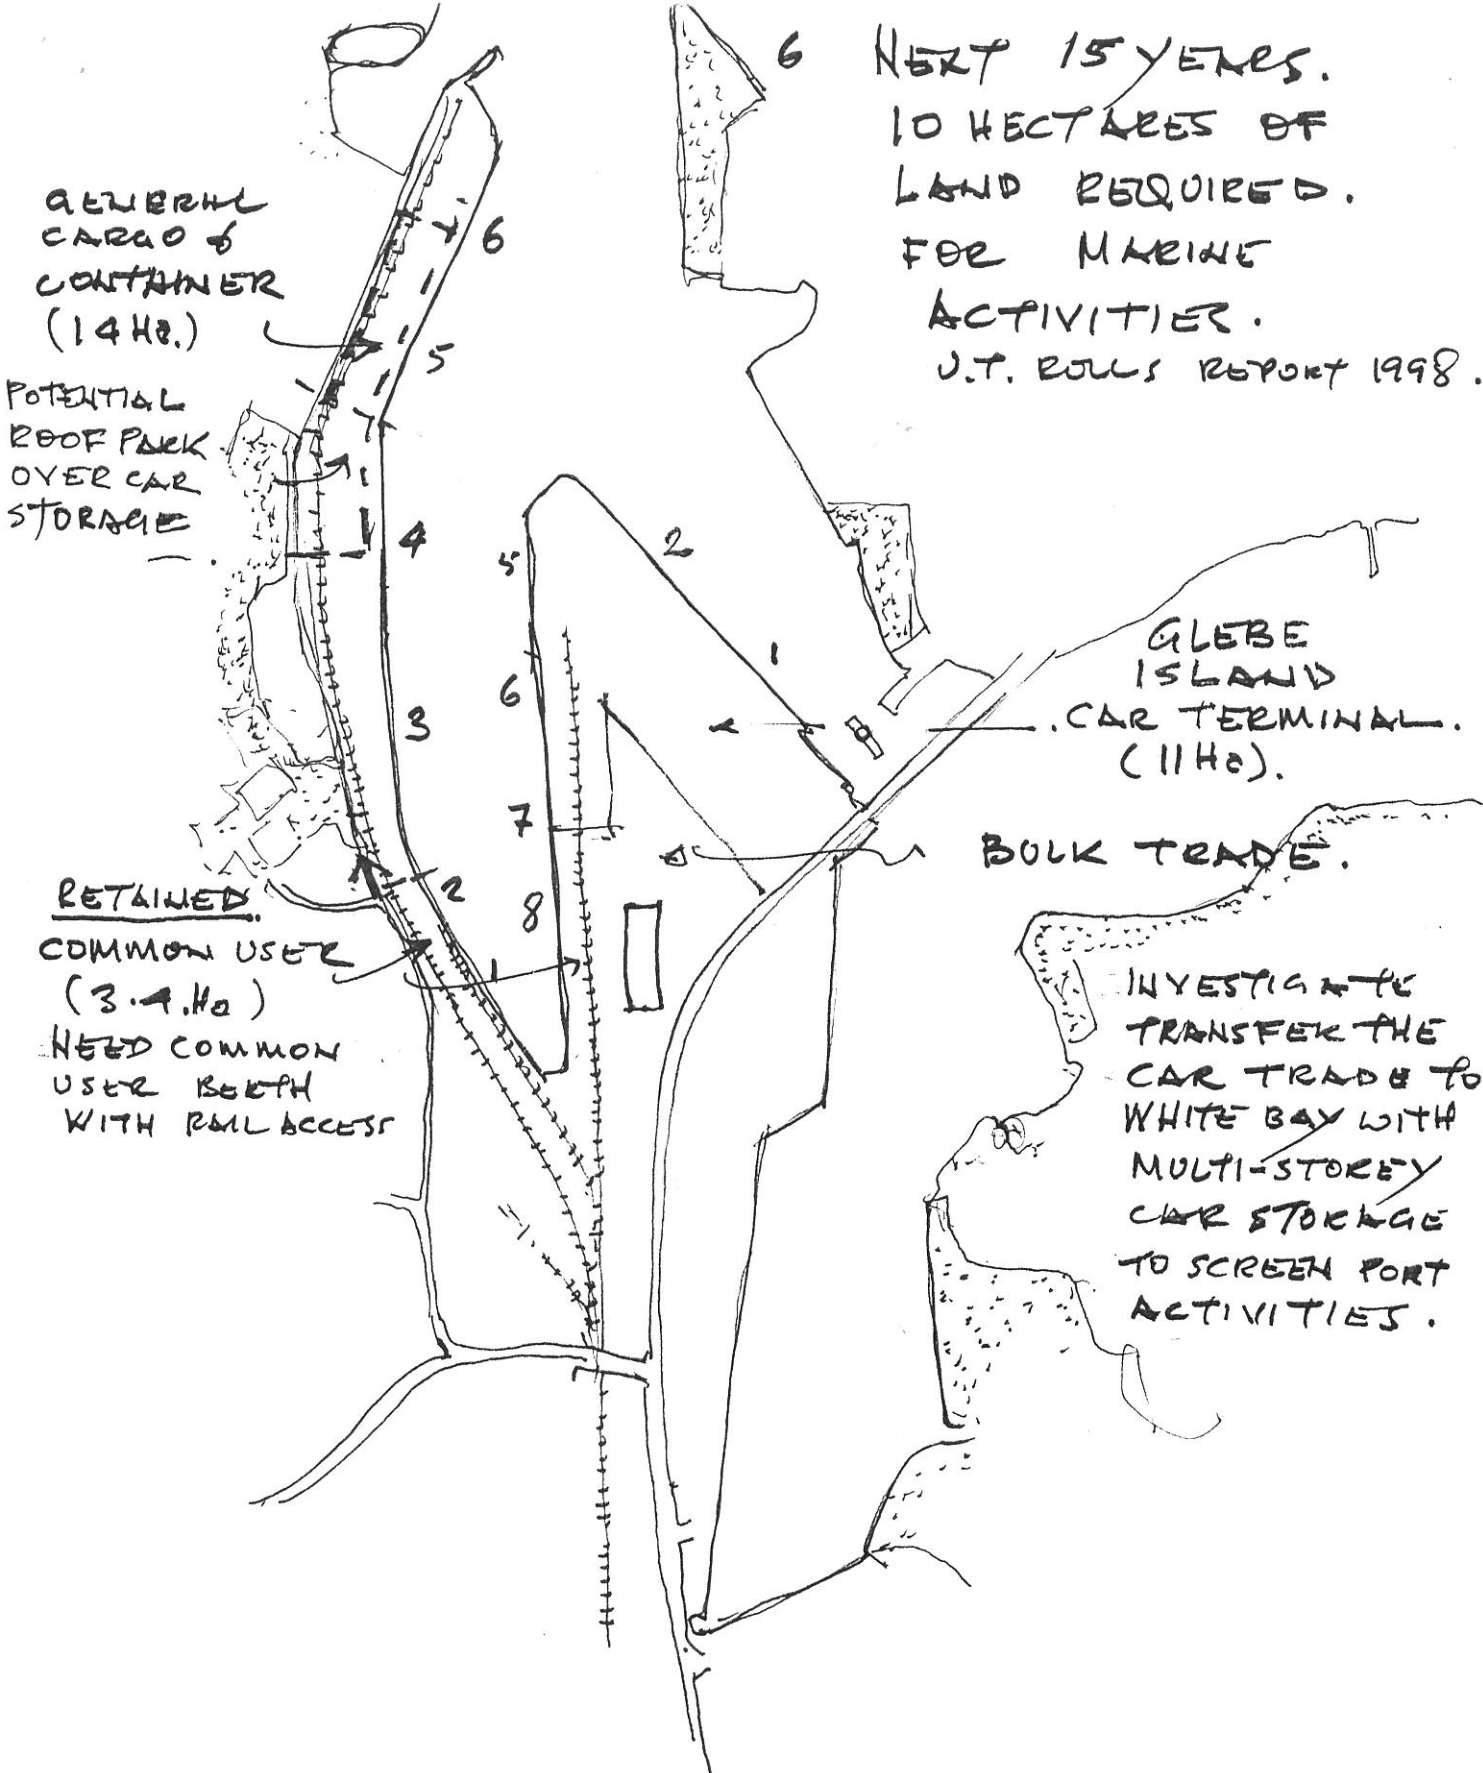 6 NEXT 15 YEARS.
10 HECTARES OF
LAND REQUIRED.
FOR MARINE
ACTIVITIES.
J.T. ROLLS REPORT 1998.
GENERAL
CARGO &
CONTAINER
(14 Ha.)
POTENTIAL
ROOF PARK
OVER CAR
STORAGE
6
5
4
3
2
1
5
6
7
8
2
1
GLEBE
ISLAND
CAR TERMINAL.
(11 Ha).
BULK TRADE.
RETAINED.
COMMON USER
(3.4.Ha)
NEED COMMON
USER BERTH
WITH RAIL ACCESS
INVESTIGATE
TRANSFER THE
CAR TRADE TO
WHITE BAY WITH
MULTI-STOREY
CAR STORAGE
TO SCREEN PORT
ACTIVITIES.